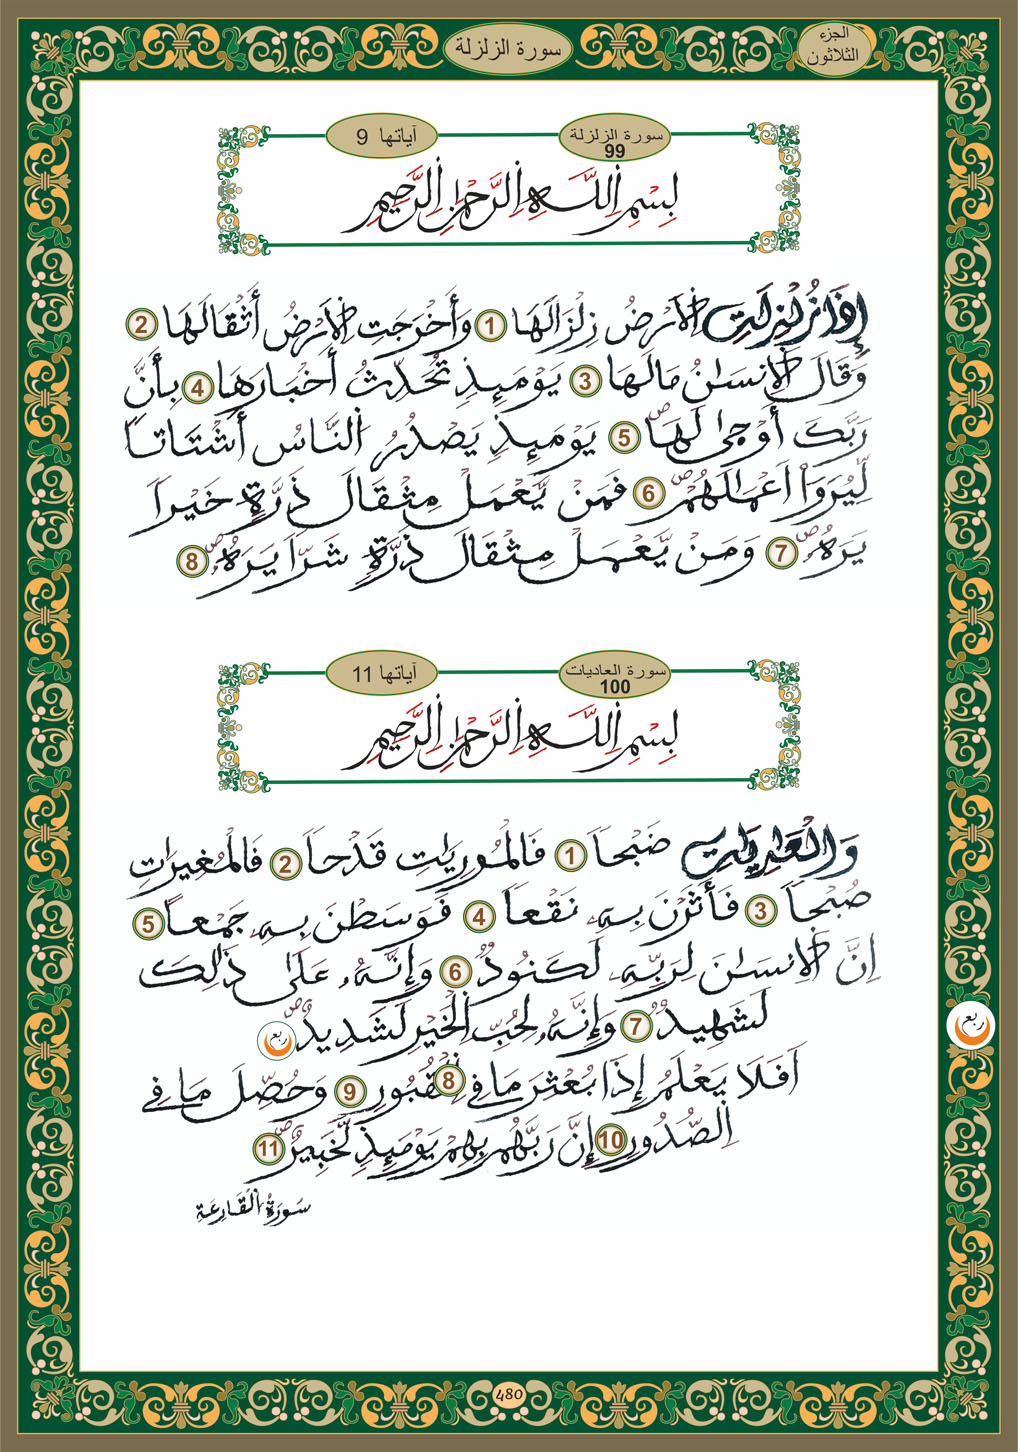 الجزء
الثلاثون
سورة الزلزلة
سورة الزلزلة
99
آياتها 9
بِسْمِ اِ۬للَّهِ اِ۬لرَّحْمَٰنِ اِ۬لرَّحِيمِ
إِذَا زُلْزِلَتِ اِ۬لَارْضُ زِلْزَالَهَا 1 وَأَخْرَجَتِ اِ۬لَارْضُ أَثْقَالَهَا 2
وَقَالَ اَ۬لِانسَٰنُ مَا لَهَا 3 يَوْمَئِذٖ تُحَدِّثُ أَخْبَارَهَا 4 بِأَنَّ
رَبَّكَ أَوْحَىٰ لَهَا ص 5 يَوْمَئِذٖ يَصْدُرُ اُ۬لنَّاسُ أَشْتَاتاٗ
لِّيُرَوَاْ اَعْمَٰلَهُمْ ص 6 فَمَنْ يَّعْمَلْ مِثْقَالَ ذَرَّةٍ خَيْراٗ
يَرَهُۥ ص 7 وَمَنْ يَّعْمَلْ مِثْقَالَ ذَرَّةٖ شَرّاٗ يَرَهُۥ ص 8
سورة العاديات
100
آياتها 11
بِسْمِ اِ۬للَّهِ اِ۬لرَّحْمَٰنِ اِ۬لرَّحِيمِ
وَالْعَٰدِيَٰتِ ضَبْحاٗ 1 فَالْمُورِيَٰتِ قَدْحاٗ 2 فَالْمُغِيرَٰتِ
صُبْحاٗ 3 فَأَثَرْنَ بِهِۦ نَقْعاٗ 4 فَوَسَطْنَ بِهِۦ جَمْعاً 5
اِنَّ اَ۬لِانسَٰنَ لِرَبِّهِۦ لَكَنُودٞ 6 وَإِنَّهُۥ عَلَىٰ ذَٰلِكَ
لَشَهِيدٞ 7 وَإِنَّهُۥ لِحُبِّ اِ۬لْخَيْرِ لَشَدِيدٌ ص ربع
ربع
اَفَلَا يَعْلَمُ إِذَا بُعْثِرَ مَا فِي 8 اِ۬لْقُبُورِ 9 وَحُصِّلَ مَا فِي
اِ۬لصُّدُورِ 10 إِنَّ رَبَّهُم بِهِمْ يَوْمَئِذٖ لَّخَبِيرٌ ص 11
سُورَةُ اُ۬لْقَارِعَةِ
480